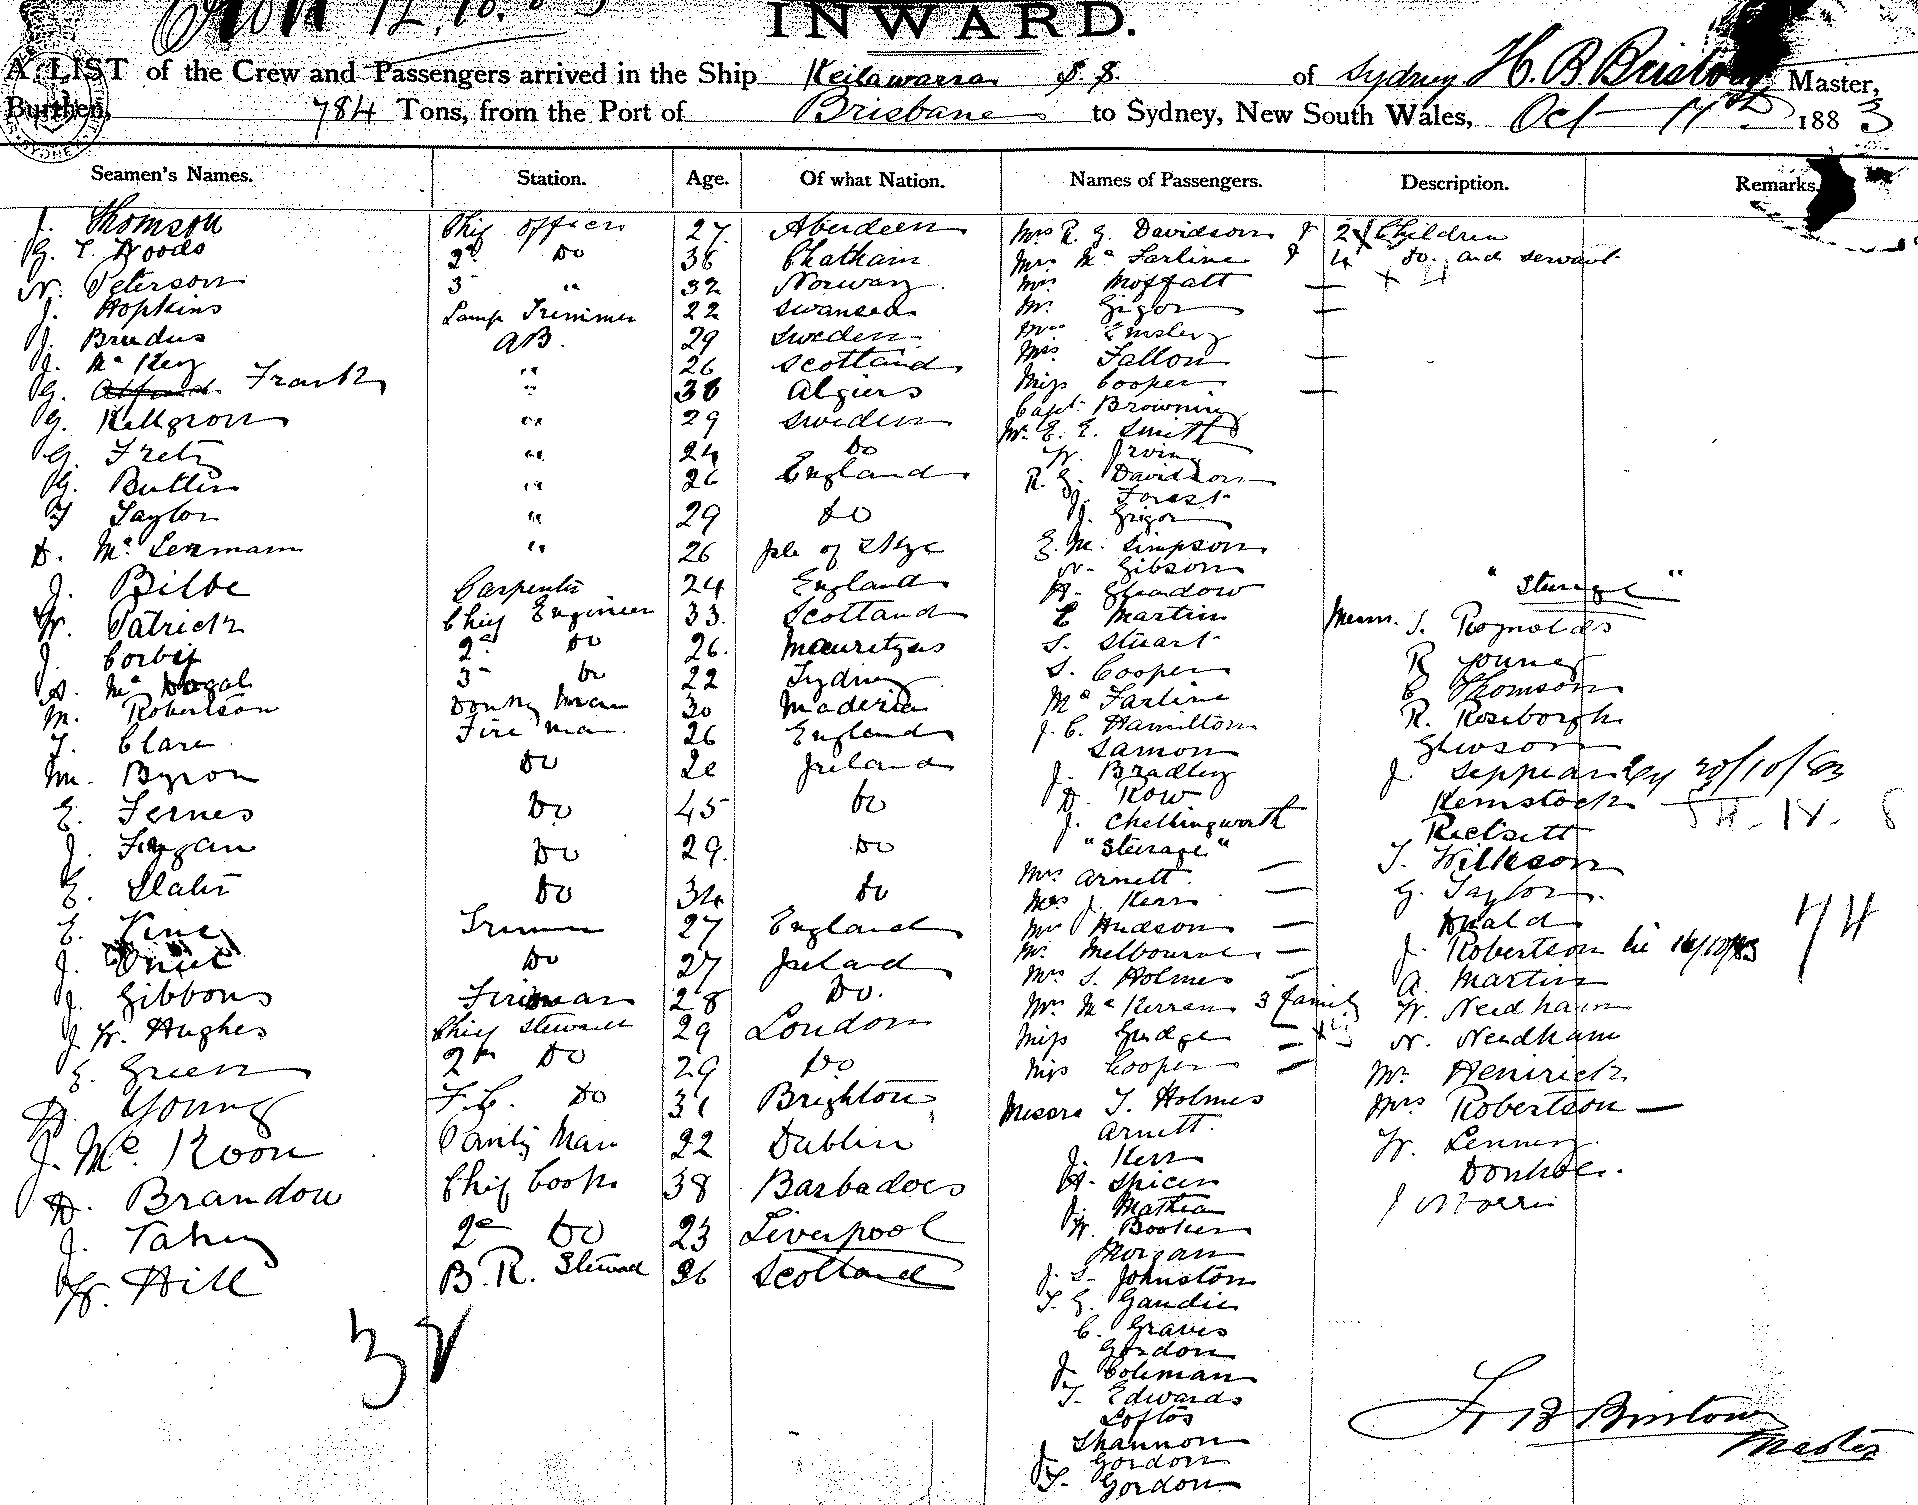 12.10.83
INWARD.
A LIST of the Crew and Passengers arrived in the Ship Keilawarra S.S. of Sydney H. B. Bristow Master,
Burthen, 784 Tons, from the Port of Brisbane to Sydney, New South Wales, Oct 11th 1883
Seamen's Names. Station. Age. Of what Nation. Names of Passengers. Description. Remarks.
J. Thomson Chief Officer 27 Aberdeen Mrs R. G. Davidson & 2 Children
G. T. Woods 2d Do 36 Chatham Mrs Mc Farline & 4 Do. and servant
W. Peterson 3 " 32 Norway Mrs Moffatt
J. Hopkins Lamp Trimmer 22 Swansea Mr. Gigor
J. Brudus AB. 29 Sweden Mrs Emsley
J. Mc Key " 26 Scotland Mrs Fallon
G. Frank " 38 Algiers Miss Cooper
G. Kellgron " 29 Sweden Capt. Browning
G. Fretz " 24 Do Mr. E. E. Smith
G. Butlin " 26 England W. Irving
T Taylor " 29 Do R. G. Davidson
D. Mc Lennann " 26 Isle of Skye J. Forest
J. Bilbe Carpenter 24 England J. Grigor
W. Patrick Chief Engineer 33. Scotland E. M. Simpson
J. Corbet 2d Do 26. Mauretzus W. Gibson
A. Mc Dogal 3 Do 22 Sydney H. Gleadow
M. Robertson Donkey Man 30 Maderia E Martin
T. Clare Fireman 26 England S. Stuart
M. Byron Do 20 Ireland S. Cooper
E. Fernes Do 45 Do Mc Farline
J. Fagan Do 29. Do J. C. Hamilton
E. Slater Do 34 Do Lamon
E. Vine Trimmer 27 England J. Bradley
J. Do 27 Ireland D. Row
J. Gibbons Fireman 28 Do. J. Chellingworth
J. W. Hughes Chief Steward 29 London
E. Green 2n Do 29 Do
H. Young F.C. Do 31 Brighton
J. Mc. Koon Pantry Man 22 Dublin
H. Brandon Chief Cook 38 Barbadoes
J. Tahey 2d Do 23 Liverpool
W. Hill B. R. Steward 26 Scotland
"Sturage"
Mrs Arnett
Mrs J. Kerr
Mrs Hudson
Mr. Melbourne
Mrs S. Holmes
Mrs Mc Kerran 3 family
Miss Gudge
Miss Cooper
Messrs T. Holmes
Arnett.
J. Kerr
H. Spicer
J. Mathia
W. Booker
Morgan
J. S. Johnston
T. G. Gaudie
C. Graves
Gordon
J. Coleman
T. Edwards
Loftos
Shannon
J. Gordon
T. Gordon
"Sturage"
Messrs. S. Roynolds
R Young
C Thomson
R. Roseborgh
Glewson
J. Seppean 20/10/83
Kemstock
Ricksett
T. Wilkson
G. Taylor
Huald
J. Robertson 16/10/83
A. Martin
W. Needham
W. Needham
Mr. Henirick
Mrs Robertson
W. Lenney
Donhoe.
J Morris
74
H B Bristow
Master